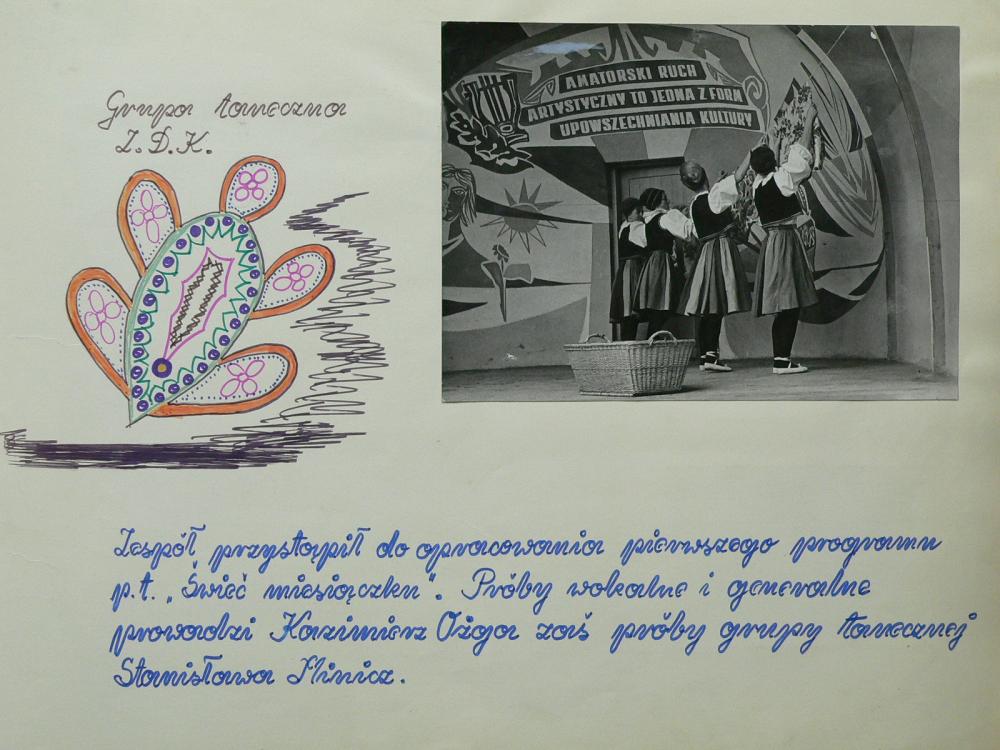 Grupa taneczna
Z.D.K.
AMATORSKI RUCH
ARTYSTYCZNY TO JEDNA Z FORM
UPOWSZECHNIANIA KULTURY
Zespół przystąpił do opracowania pierwszego programu
p.t. „Świeć miesiączku". Próby wokalne i generalne
prowadzi Kazimierz Ożga zaś próby grupy tanecznej
Stanisława